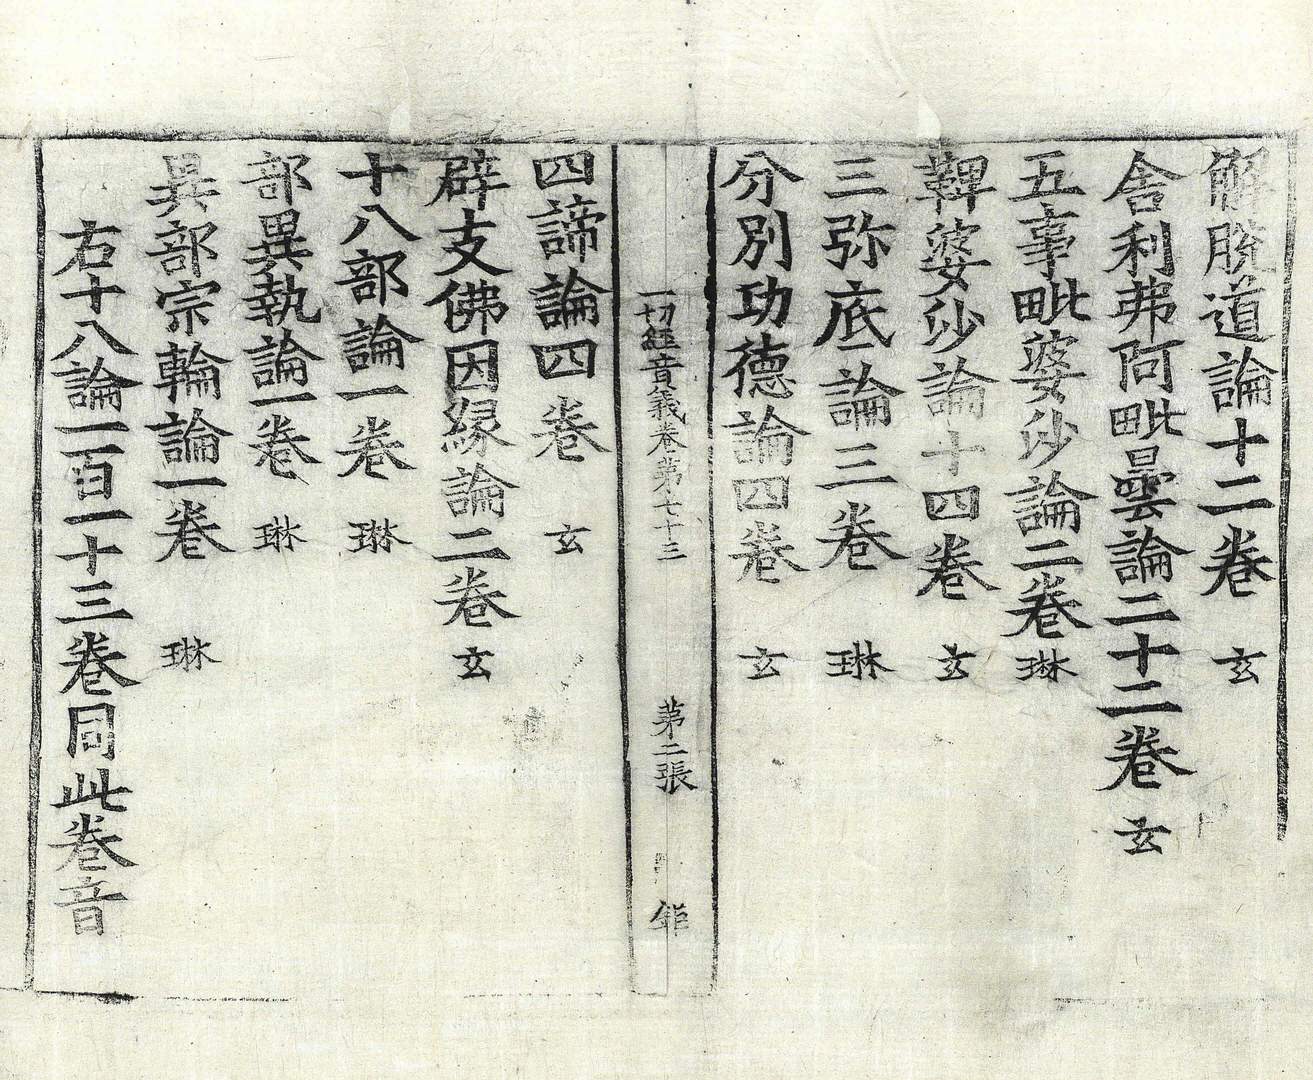 解脫道論十二卷 玄
舎利弗阿毗曇論二十二卷 玄
五事毗婆沙論二卷 琳
鞞婆沙論十四卷 玄
三弥底論三卷 琳
分別功德論四卷 玄
一切経音義卷第七十三 第二張
四諦論四卷 玄
辟支佛因緣論二卷 玄
十八部論一卷 琳
部異執論一卷 琳
異部宗輪論一卷 琳
右十八論一百一十三卷同此卷音